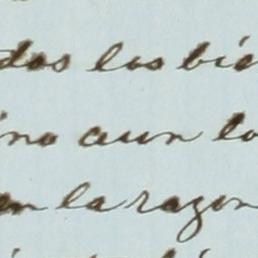 dos los bie
ino aun lo
en la razon